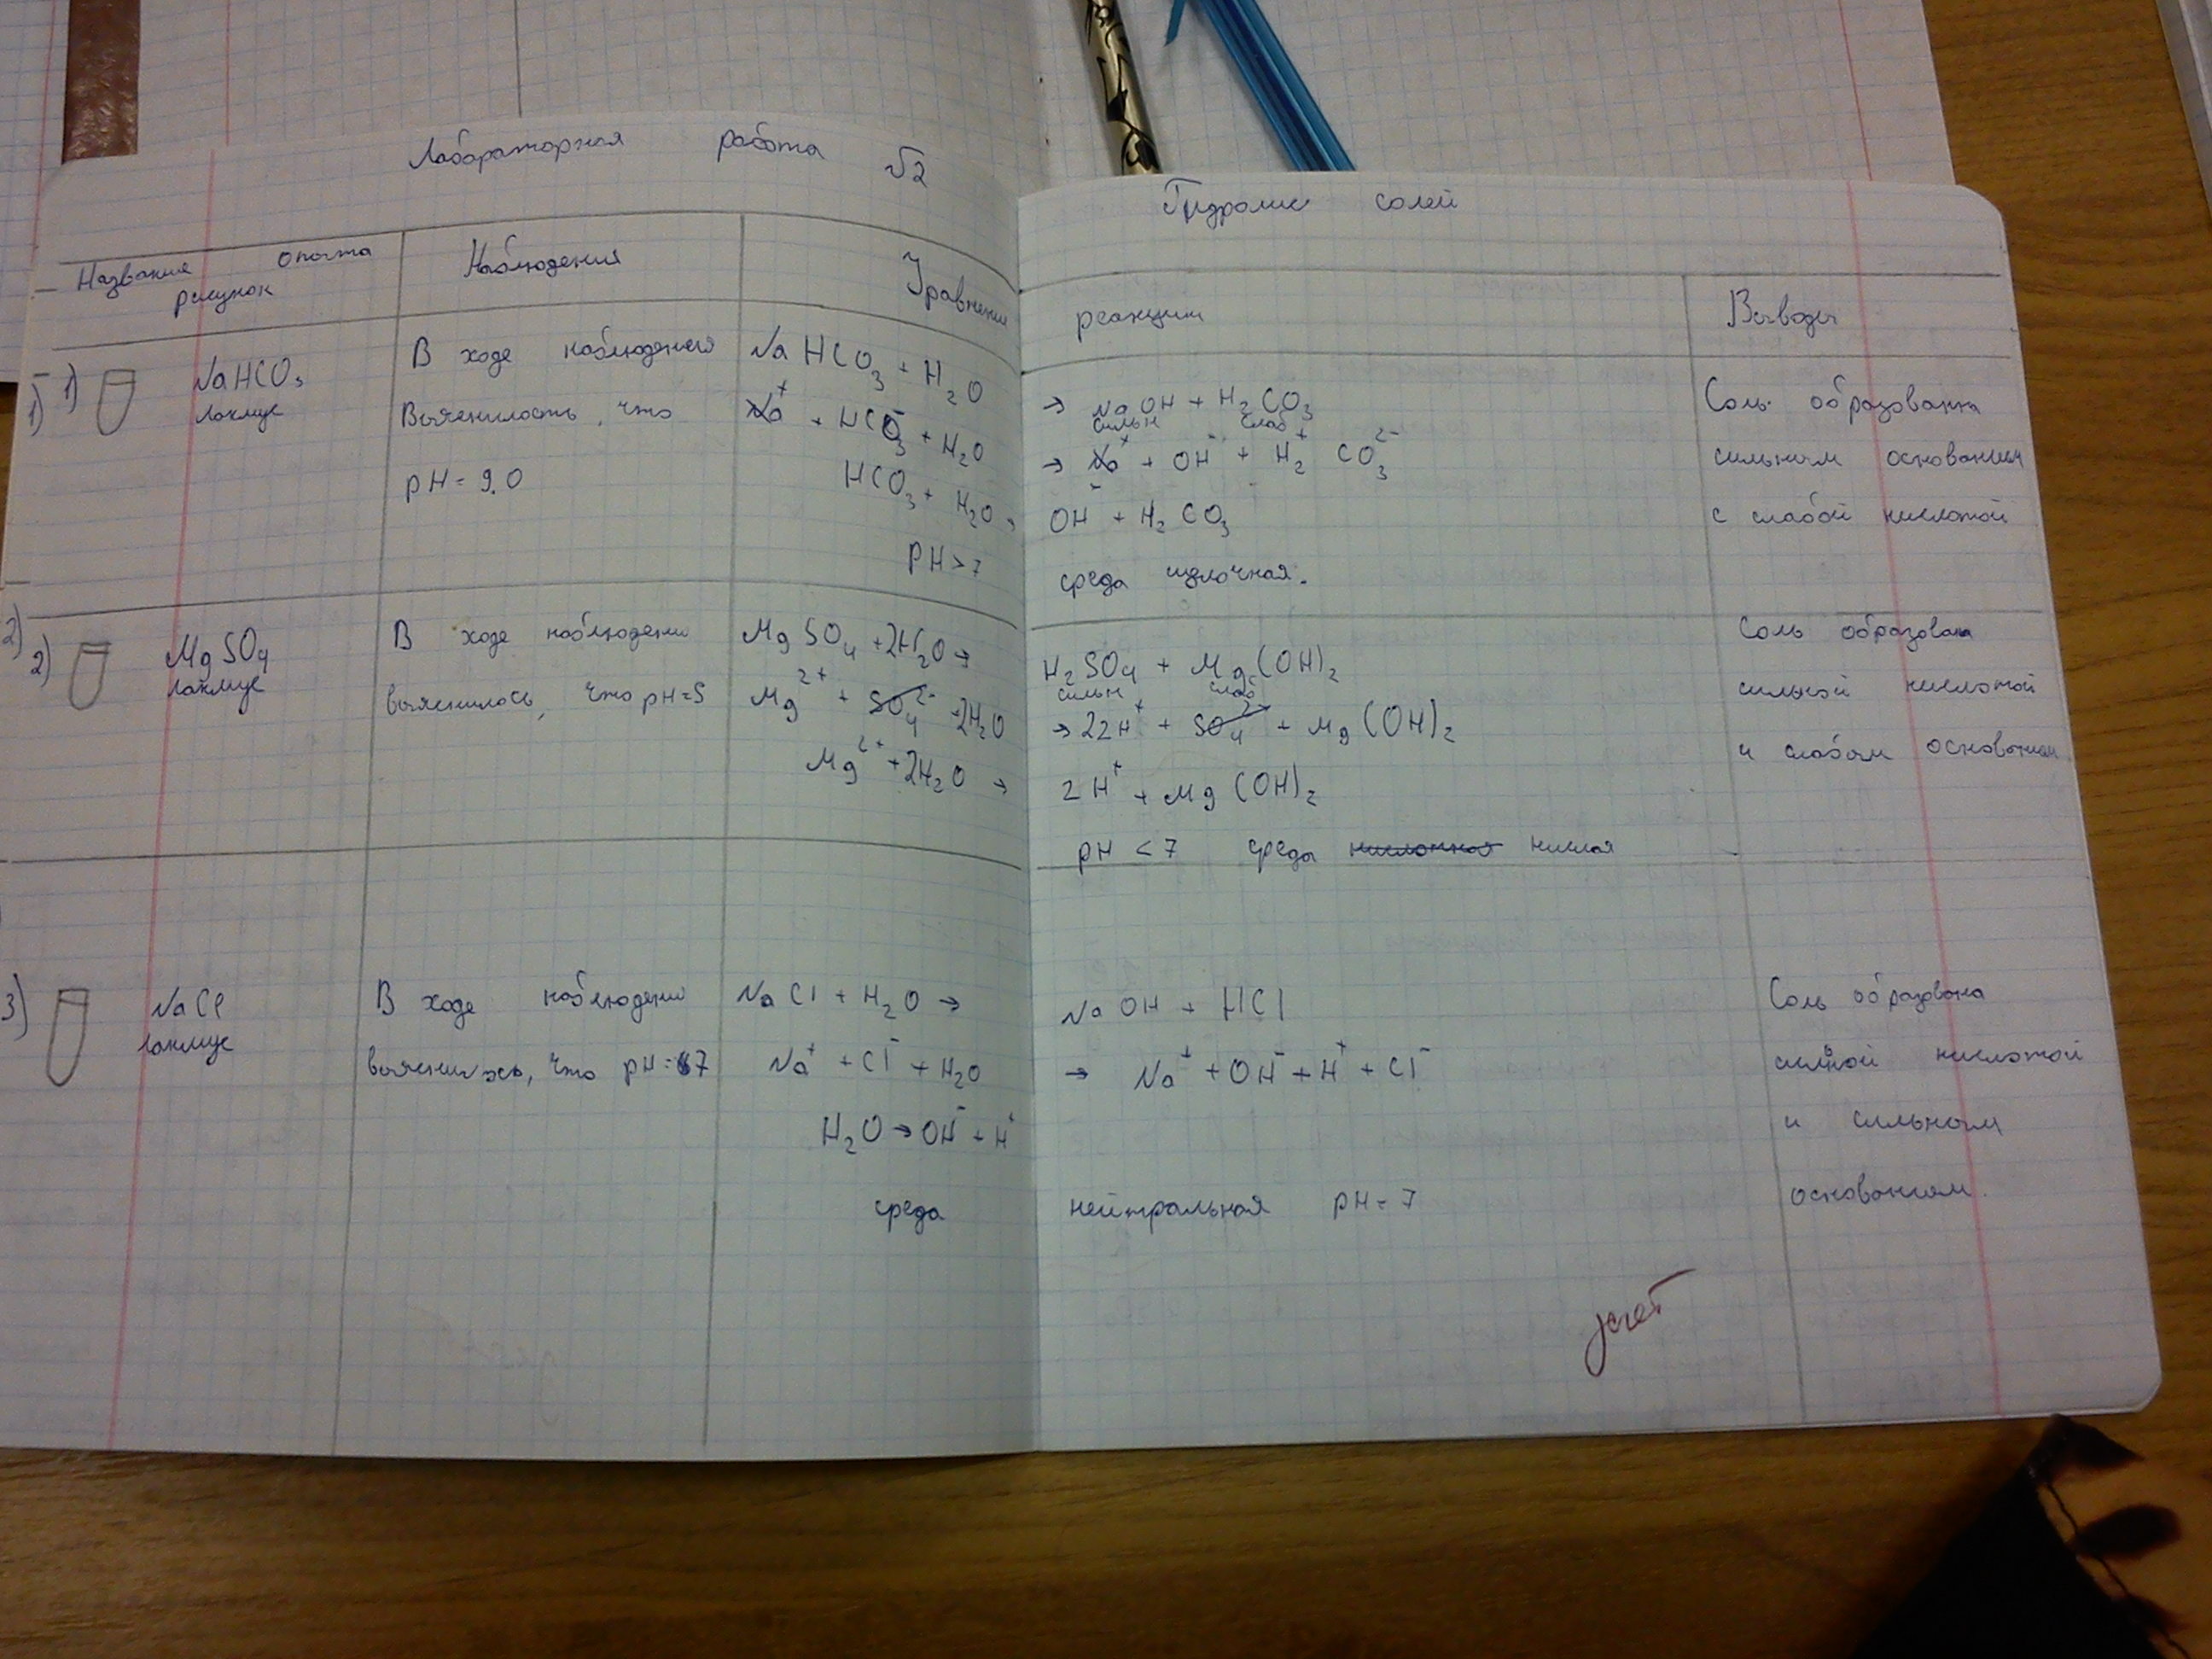 Лабораторная работа √2
Гидролис солей
Название опыта
рисунок
Наблюдения
Уравнения
реакции
Выводы
1) 1) NaHCO₃
лакмус
В ходе наблюдения
Выяснилость, что
pH = 9.0
NaHCO₃ + H₂O
→ NaOH + H₂CO₃
сильн слаб
Na⁺ + HCO₃⁻ + H₂O
→ Na⁺ + OH⁻ + H₂⁺ CO₃²⁻
HCO₃⁻ + H₂O →
OH⁻ + H₂CO₃
PH > 7
среда щелочная.
Соль образованна
сильным основанием
с слабой кислотой
2) 2) MgSO₄
лакмус
В ходе наблюдени
выяснилось, что pH=5
MgSO₄ + 2H₂O →
H₂SO₄ + Mg(OH)₂
сильн слаб
Mg²⁺ + SO₄²⁻ + 2H₂O
→ 22H⁺ + SO₄²⁻ + Mg(OH)₂
Mg²⁺ + 2H₂O →
2H⁺ + Mg(OH)₂
pH < 7 среда кислотная кислая
Соль образована
сильной кислотой
и слабым основанием
3) NaCl
лакмус
В ходе наблюдени
выяснилось, что pH = 7
NaCl + H₂O →
NaOH + HCl
Na⁺ + Cl⁻ + H₂O
→ Na⁺ + OH⁻ + H⁺ + Cl⁻
H₂O → OH⁻ + H⁺
среда
нейтральная pH = 7
Соль образована
сильной кислотой
и сильным
основанием.